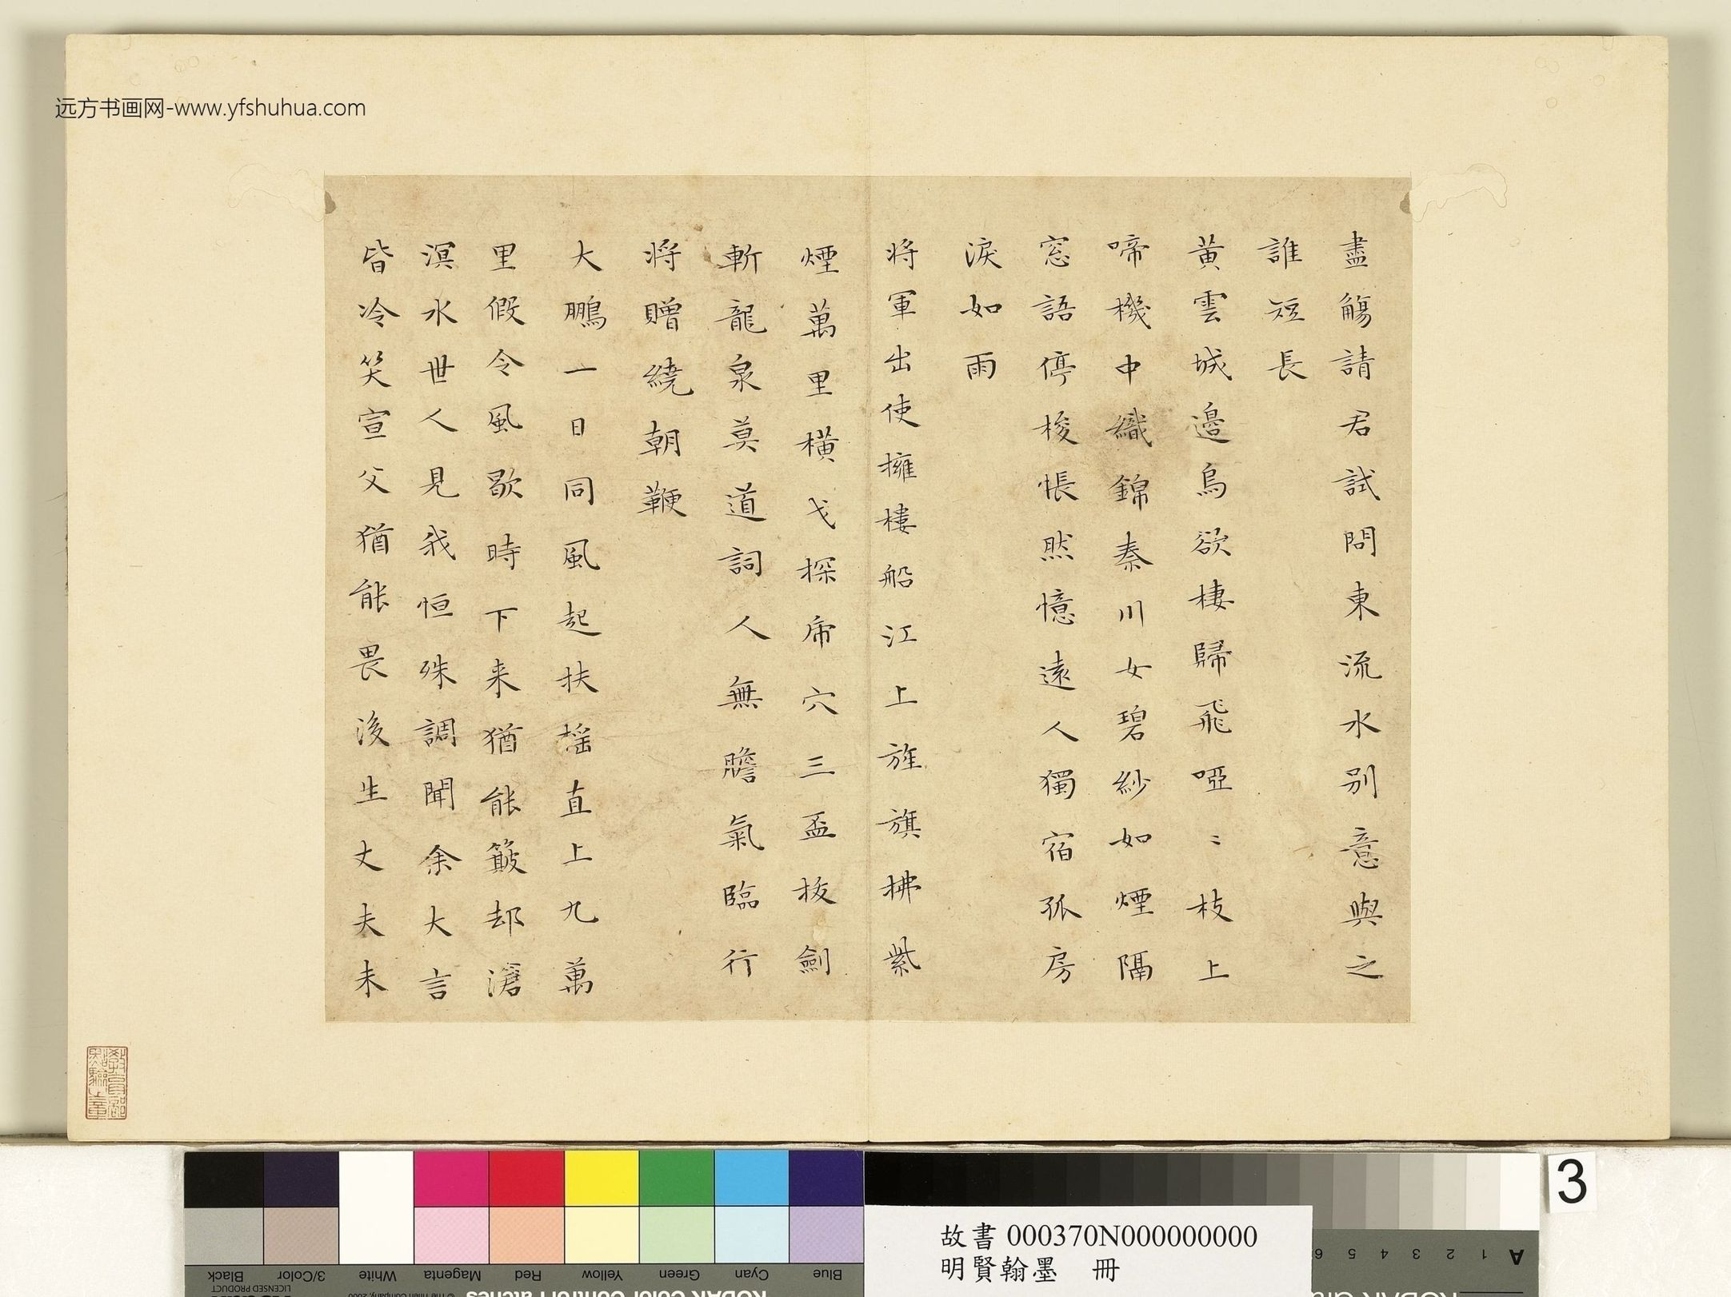 远方书画网-www.yfshuhua.com
盡觴請君試問東流水別意與之
誰短長
黃雲城邊烏欲棲歸飛啞〻枝上
啼機中織錦秦川女碧紗如煙隔
窓語停梭悵然憶遠人獨宿孤房
淚如雨
将軍出使擁樓船江上旌旗拂紫
煙萬里橫戈探虎穴三盃拔劍
斬龍泉莫道詞人無膽氣臨行
将贈繞朝鞭
大鵬一日同風起扶搖直上九萬
里假令風歇時下来猶能簸却滄
溟水世人見我恒殊調聞余大言
皆冷笑宣父猶能畏後生丈夫未
3
故書 000370N000000000
明賢翰墨 冊
Black 3/Color White Magenta Red Yellow Green Cyan Blue
LICENSED PRODUCT
KODAK Color Control Patches
A 1 2 3 4 5 6